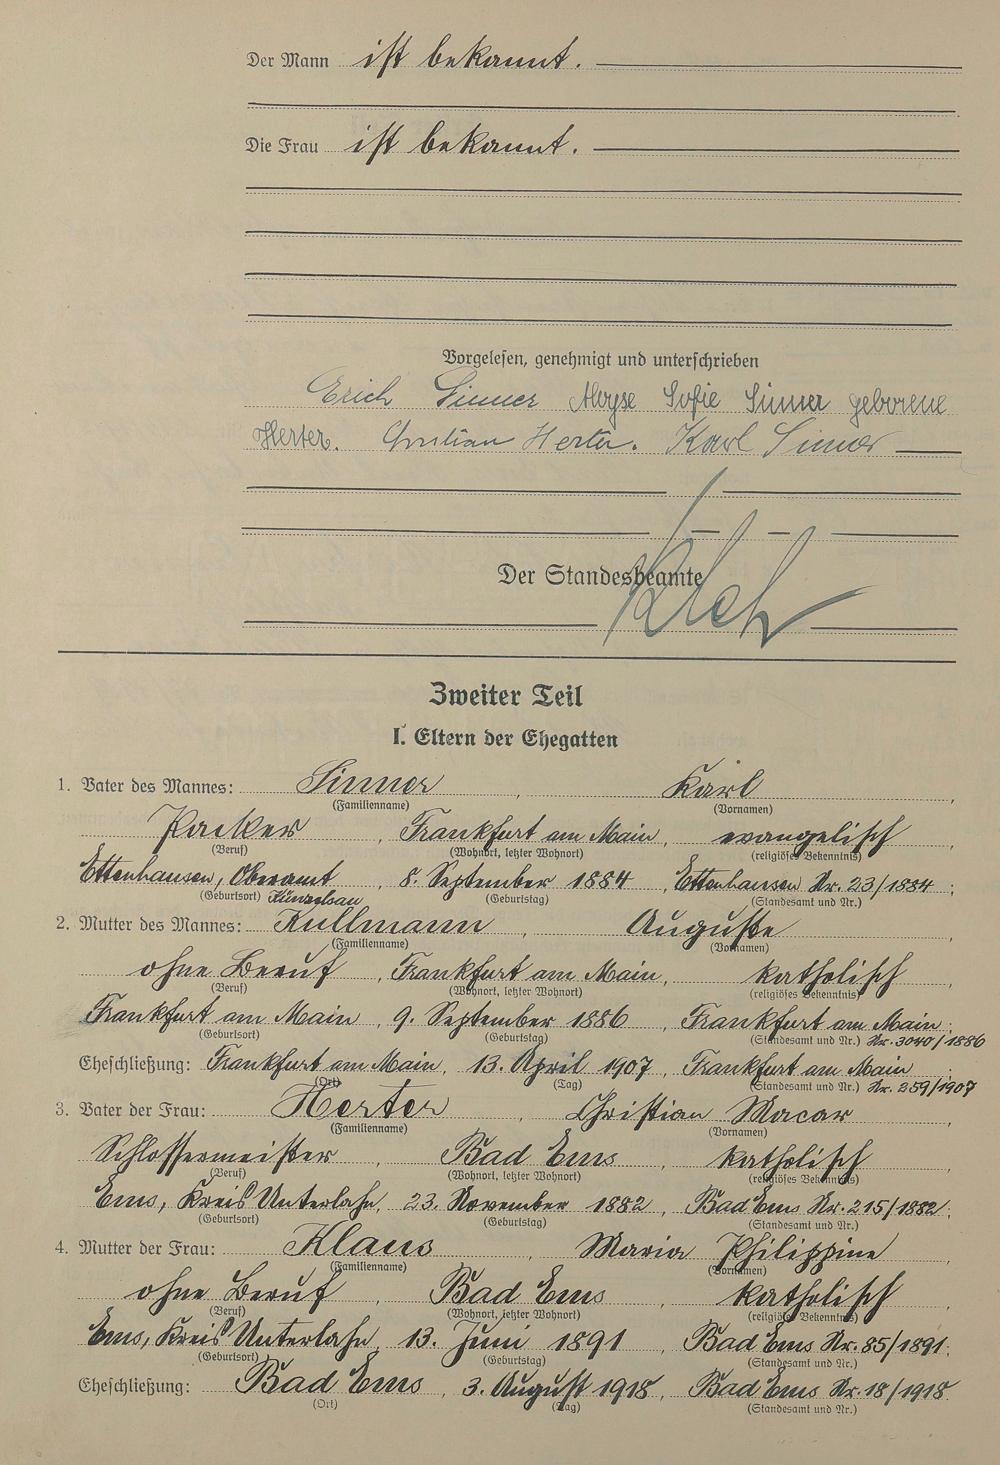 Der Mann ist bekannt.
Die Frau ist bekannt.
Vorgelesen, genehmigt und unterschrieben
Erich Sinner Aloyse Sofie Sinner geborene
Herter. Christian Herter. Karl Sinner
Der Standesbeamte
Zweiter Teil
I. Eltern der Ehegatten
1. Vater des Mannes: Sinner, Karl,
(Familienname) (Vornamen)
Packer, Frankfurt am Main, evangelisch
(Beruf) (Wohnort, letzter Wohnort) (religiöses Bekenntnis)
Ettenhausen, Oberamt, 8. September 1884, Ettenhausen Nr. 23/1884;
(Geburtsort) Künzelsau (Geburtstag) (Standesamt und Nr.)
2. Mutter des Mannes: Kullmann, Auguste,
(Familienname) (Vornamen)
ohne Beruf, Frankfurt am Main, katholisch
(Beruf) (Wohnort, letzter Wohnort) (religiöses Bekenntnis)
Frankfurt am Main, 9. September 1886, Frankfurt am Main;
(Geburtsort) (Geburtstag) (Standesamt und Nr.) Nr. 3040/1886
Eheschließung: Frankfurt am Main, 13. April 1907, Frankfurt am Main;
(Ort) (Tag) (Standesamt und Nr.) Nr. 259/1907
3. Vater der Frau: Herter, Christian Macar,
(Familienname) (Vornamen)
Schlossermeister, Bad Ems, katholisch,
(Beruf) (Wohnort, letzter Wohnort) (religiöses Bekenntnis)
Ems, Kreis Unterlahn, 23. November 1882, Bad Ems Nr. 215/1882;
(Geburtsort) (Geburtstag) (Standesamt und Nr.)
4. Mutter der Frau: Klaus, Maria Philippine,
(Familienname) (Vornamen)
ohne Beruf, Bad Ems, katholisch,
(Beruf) (Wohnort, letzter Wohnort) (religiöses Bekenntnis)
Ems, Kreis Unterlahn, 13. Juni 1891, Bad Ems Nr. 85/1891;
(Geburtsort) (Geburtstag) (Standesamt und Nr.)
Eheschließung: Bad Ems, 3. August 1918, Bad Ems Nr. 18/1918.
(Ort) (Tag) (Standesamt und Nr.)